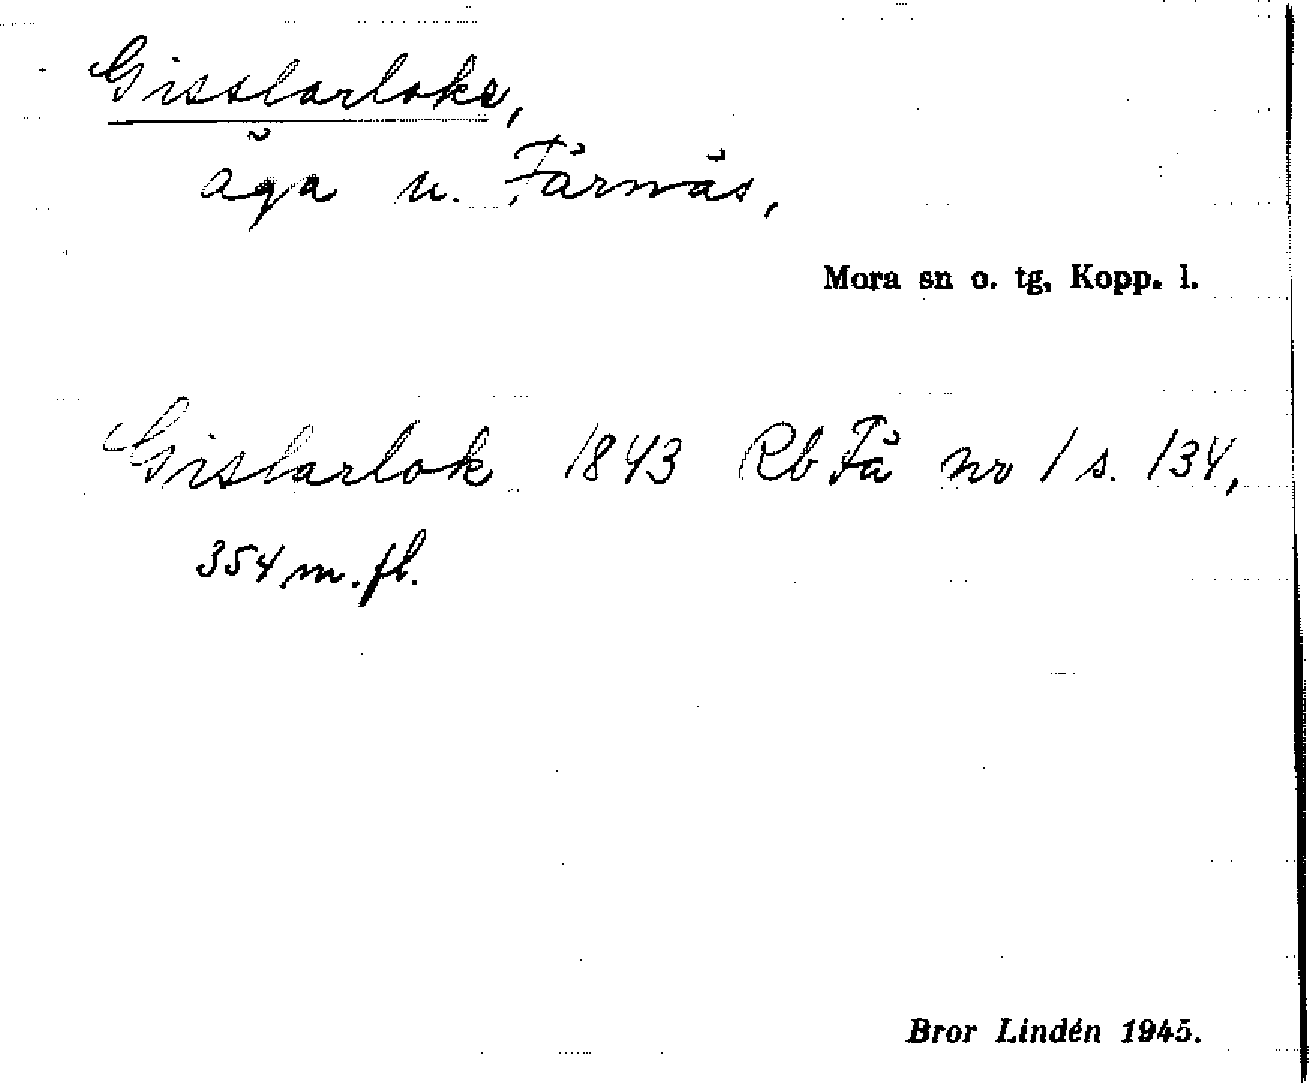 Gisslarloks,
äga u. Färnäs,
Mora sn o. tg, Kopp. l.
Gislarlok 1843 Rb Få nr 1 s. 134,
354 m. fl.
Bror Lindén 1945.